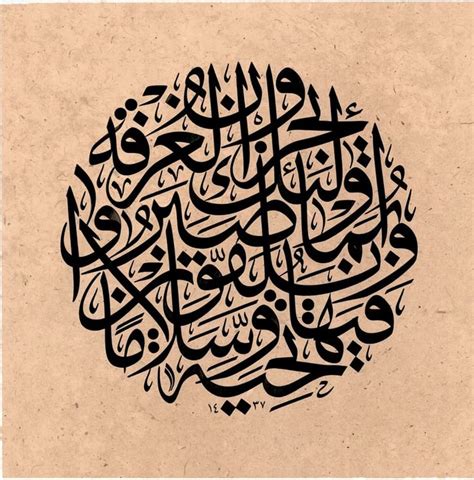 أولئك يجزون الغرفة
بما صبروا
ويلقون
فيها تحية وسلاما
١٤٣٧